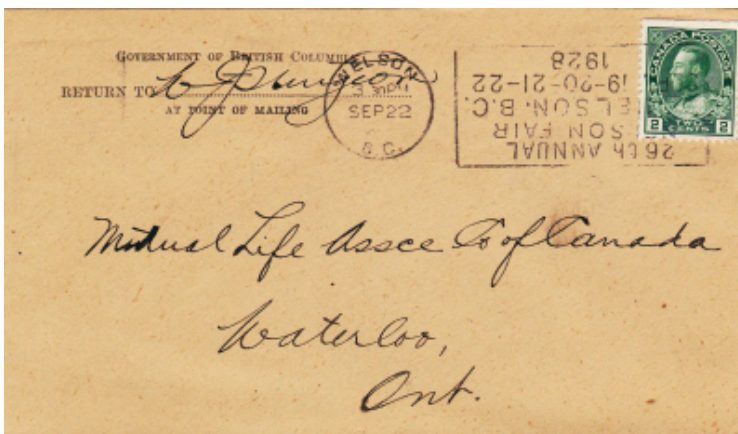 GOVERNMENT OF BRITISH COLUMBIA
RETURN TO
AT POINT OF MAILING
NELSON
PM
SEP 22
B.C.
26th ANNUAL
SON FAIR
ELSON. B.C.
19-20-21-22
1928
CANADA POSTAGE
2 TWO CENTS 2
Mutual Life Assce Co of Canada
Waterloo,
Ont.